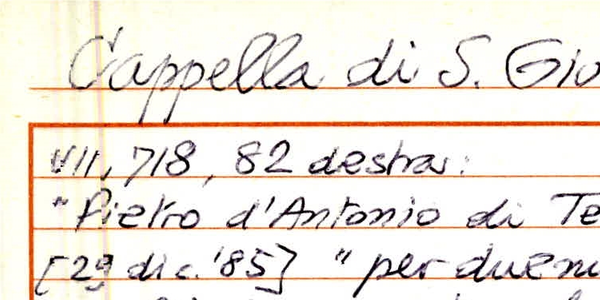 Cappella di S. Gio
VII, 718, 82 destra:
"Pietro d'Antonio di Te
[29 dic. '85] " per due